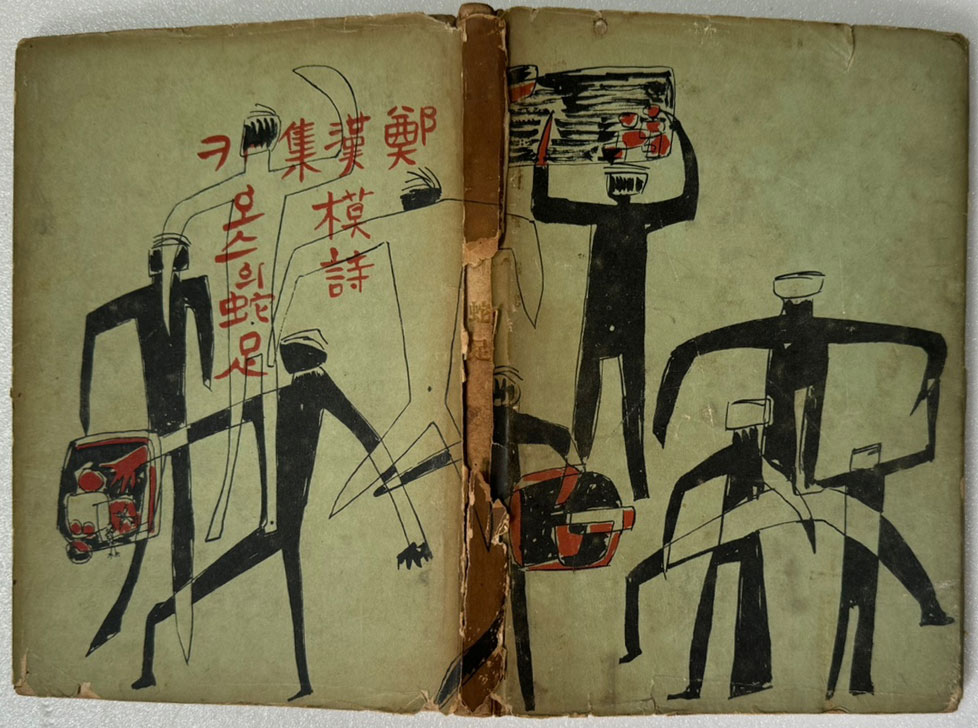 鄭漢模詩集
카오스의蛇足
蛇足